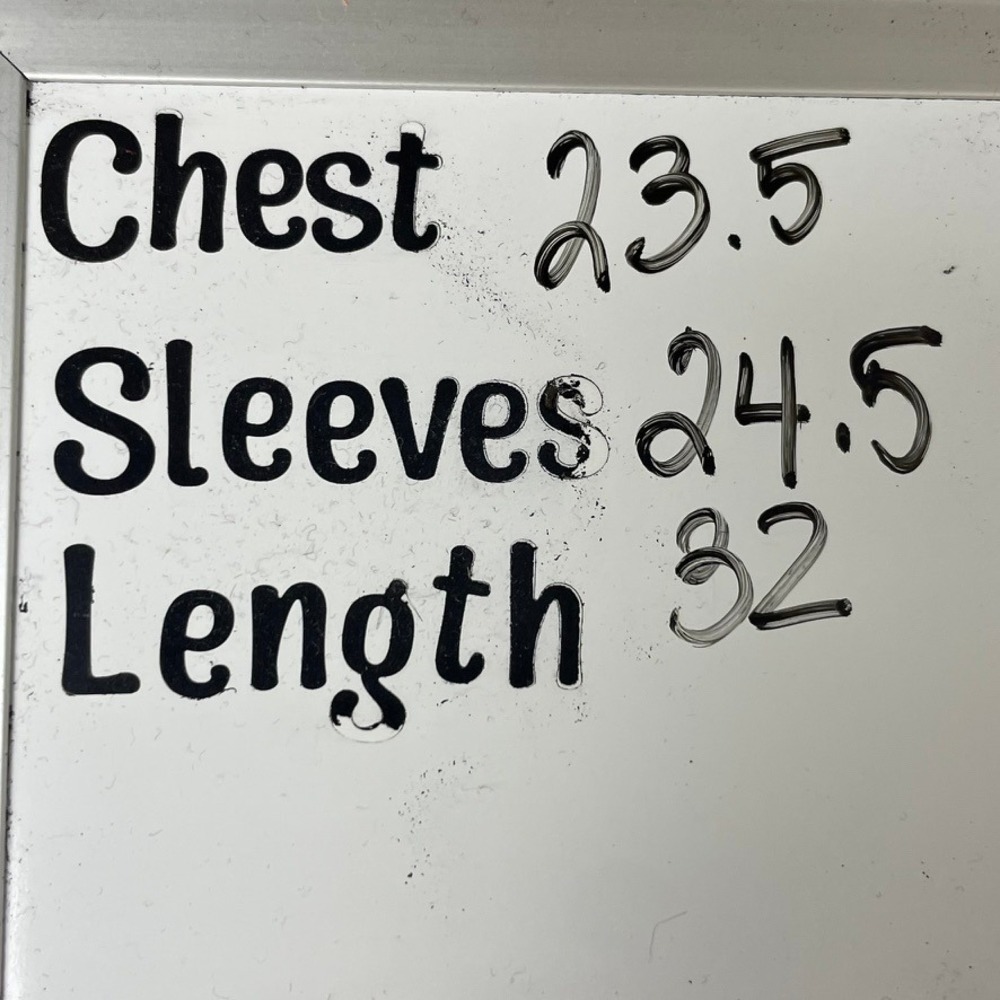 Chest 23.5
Sleeves 24.5
Length 32